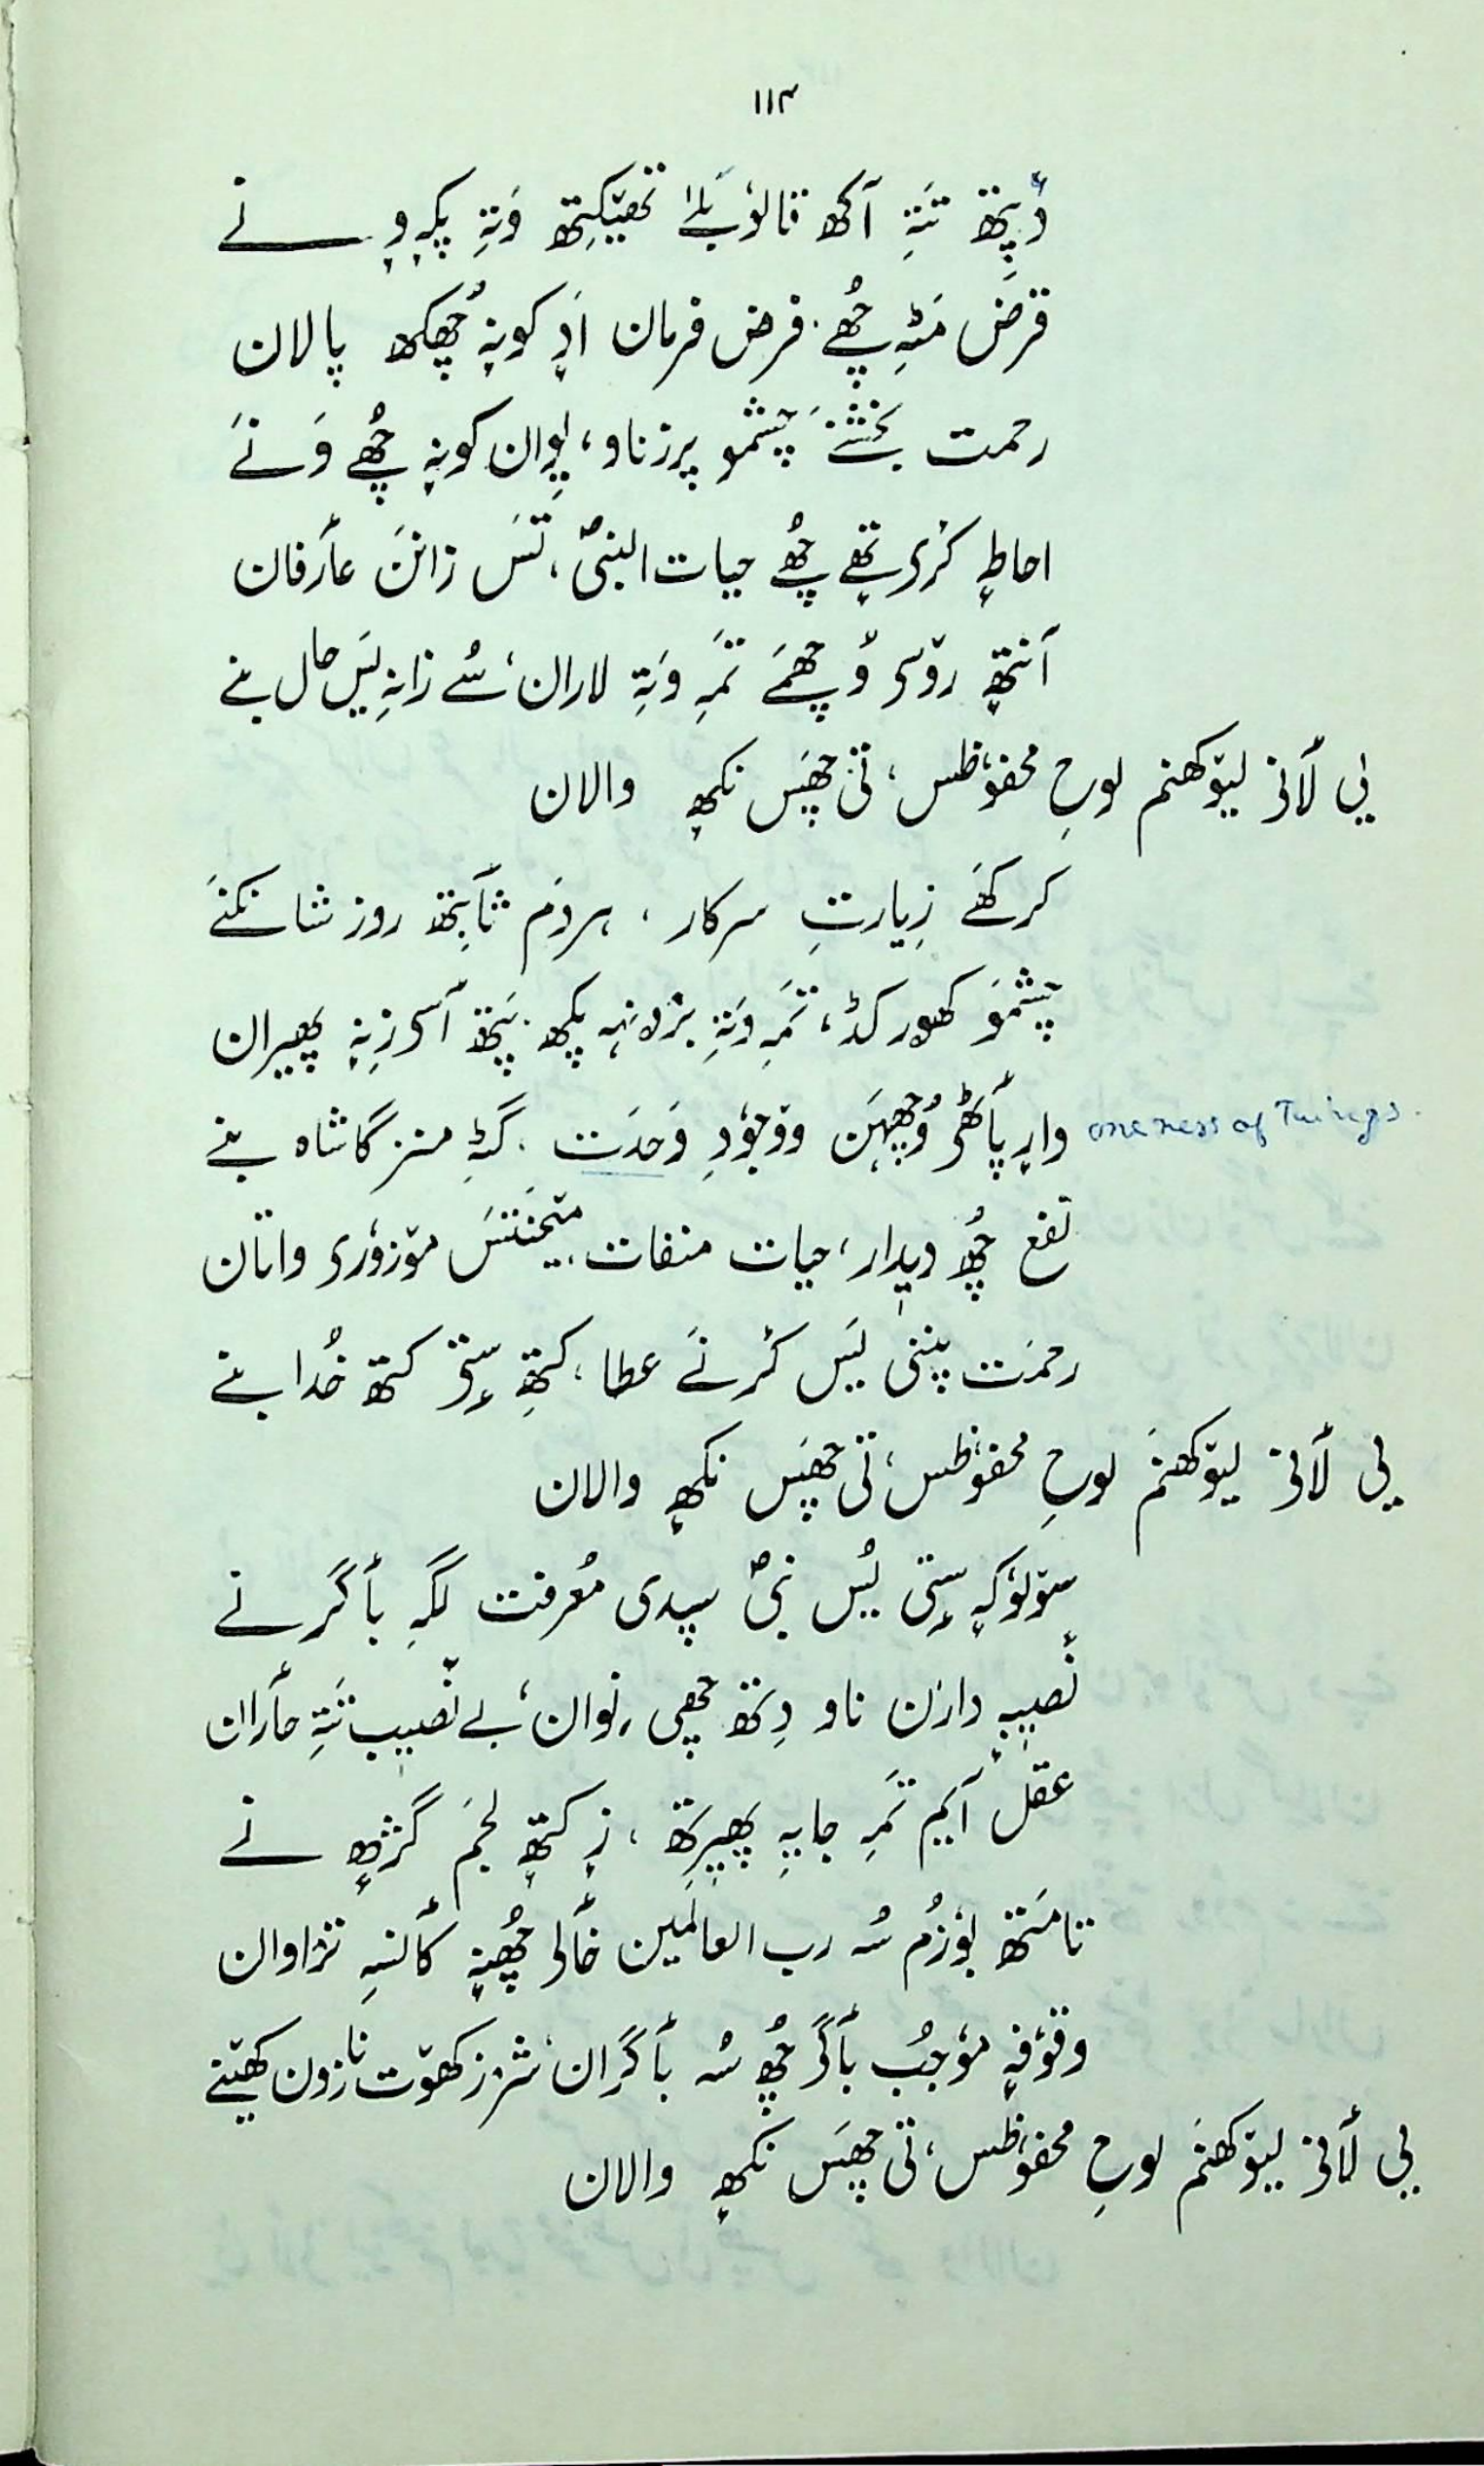 ۱۱۴
دُپتھ تَتہِ اَکھ قالوٗبَلےٰ تھیٚکِتھ وَتہِ پکہٕ وٕنے
قرض مَٹہِ چھُے. فرض فرمان ادٕ کونہٕ چھُکھ پالان
رحمت بخشنےَ چشمو پرزناو، یِوان کونہٕ چھُے وَنےَ
احاطہٕ کٔرۍ تھے چھُے حیات النبیؐ، تَس زانَن عٲرفان
اَنتھٕ روٚس وُچھمَے تَمہِ وَتہِ لاران، سُے زانہِ یَس حال بنے
یی لٲنۍ لیوٗکھنم لوحِ محفوٗظس، تی چھَس نکھہٕ والان
کر کھَے زِیارتِ سرکار، ہردَم ثٲبِتھ روز شانکنےَ
چشمَو کھور کڈ، تَمہِ وَتہِ برٛونہہ پکھ. پَتھ آسۍ زِنہٕ پھیران
وارٕ پٲٹھۍ وُچھہَن ووجوٗدِ وَحدَت. گَٹہِ منز گاشاہ بنے
oneness of Things.
نفع چھُ دیدار، حیات منفات. میٚحنتَس موٚزوٗرۍ واتان
رحمَت پننی یَس کٔرنےَ عطا، کتھِ سٟتۍ کتھ خُدا بنے
یی لٲنۍ لیوٗکھنَم لوحِ محفوٗظس، تی چھَس نکھہٕ والان
سوٚلوٗکہٕ سٟتی یُس نبیؐ سپدی مُعرفت لگہِ بٲگرنے
نٔصیبہٕ دارن ناو دِتھ چھی نِوان، بے نٔصیٖب تَتہِ حٲران
عقلٕ آیم تَمہِ جایہِ پھیرِتھ، زِ کتھٕ لجم گژھہٕ نے
تامَتھ بوٗزُم سُہ رب العالَمین خٲلی چھُنہٕ کٲنسہِ ترٛاوان
وقوٗفہٕ موٗجُب بٲگۍ چھُ سُہ بٲگران، شرٛز کھوٚت نا زون کھیٚنے
یی لٲنۍ لیوٗکھنَم لوحِ محفوٗظس، تی چھَس نکھہٕ والان